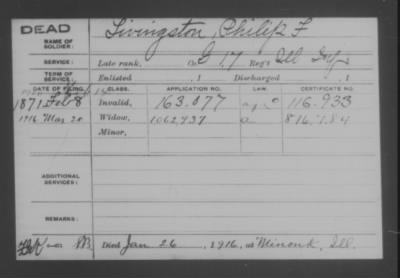 DEAD
NAME OF SOLDIER: Livingston, Philip F
SERVICE: Late rank, Co. G 17 Reg't Ill Inf
TERM OF SERVICE: Enlisted , 1 Discharged , 1
DATE OF FILING. CLASS. APPLICATION NO. LAW. CERTIFICATE NO.
1871 Feb 8 Invalid, 163.077 116.933
1916 Mar 20 Widow, 1062,737 816,784
Minor,
ADDITIONAL SERVICES:
REMARKS:
Died Jan 26, 1916, at Minonk, Ill.